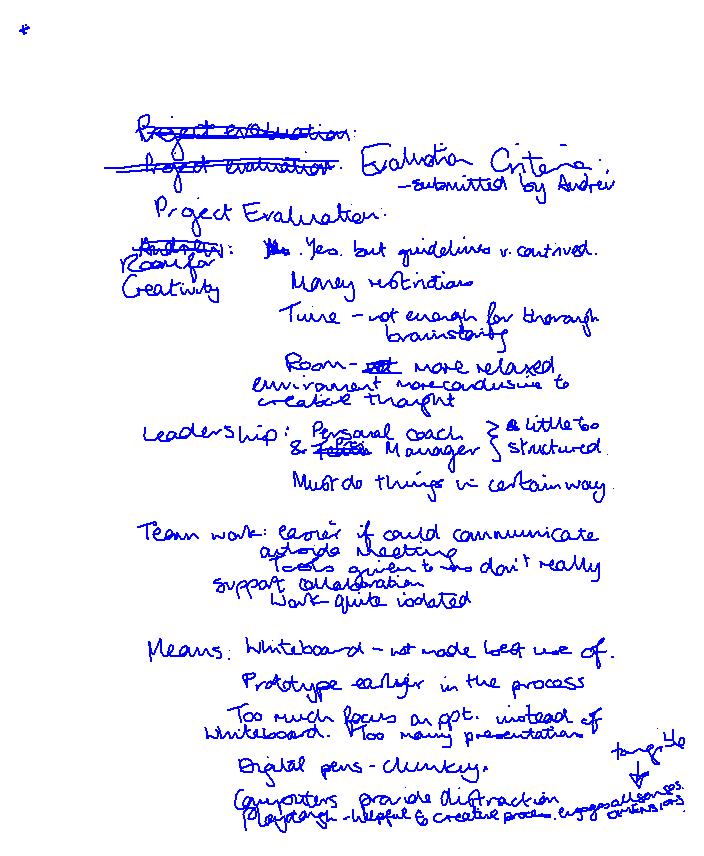 Project evaluation.
Project evaluation. Evaluation Criteria.
- submitted by Andrew
Project Evaluation.
Andrew: Yes. but guidelines v. contrived.
Room for
Creativity Money restrictions
Time - not enough for thorough
brainstorming
Room - not more relaxed
environment more conducive to
creative thought
Leadership: Personal coach > a little too
& Manager } structured.
Must do things in certain way.
Team work: easier if could communicate
outside meeting
Tools given to us don't really
support collaboration
Work quite isolated
Means: Whiteboard - not made best use of.
Prototype earlier in the process
Too much focus on ppt. instead of
Whiteboard. Too many presentations
Digital pens - clunky.
tangible
Computers provide distraction
Playdough - helpful to creative process. engages all senses.
dimensions